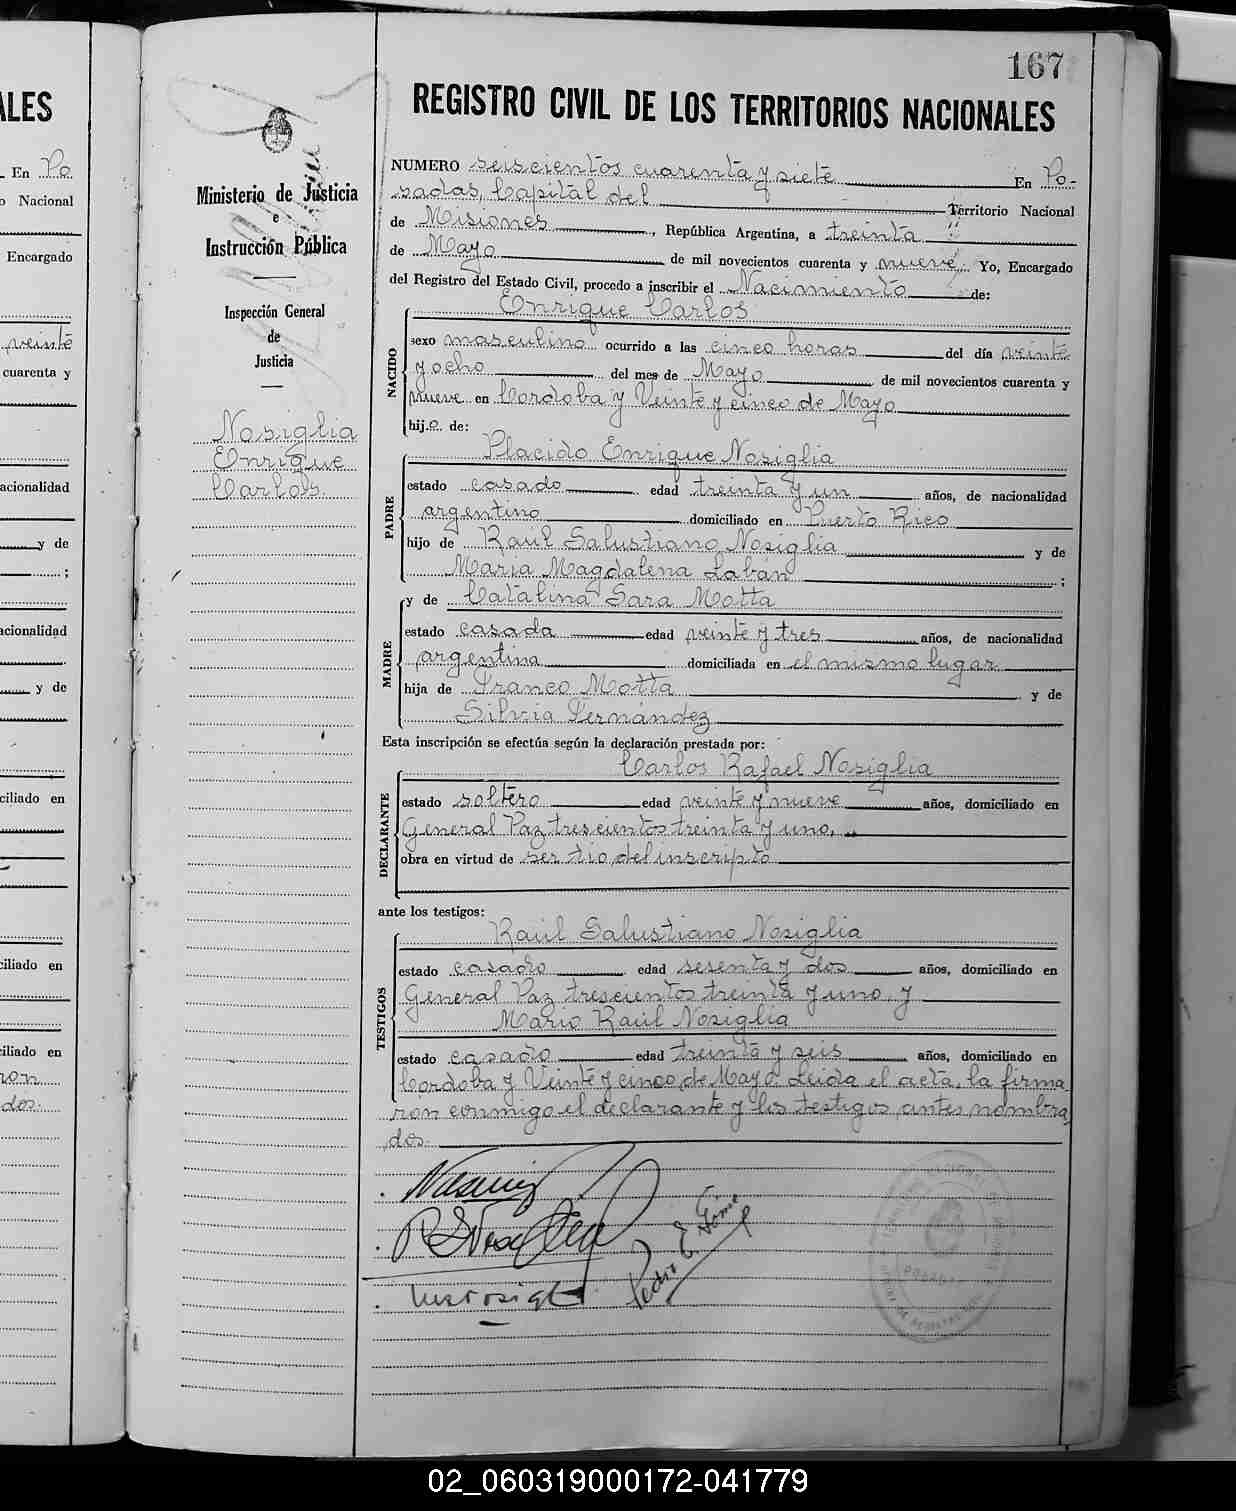 167
REGISTRO CIVIL DE LOS TERRITORIOS NACIONALES
ALES
En Po
o Nacional
Encargado
veinte
cuarenta y
acionalidad
y de
;
acionalidad
y de
ciliado en
ciliado en
iliado en
ron
dos.
Ministerio de Justicia
e
Instrucción Pública
Inspección General
de
Justicia
Nosiglia
Enrique
Carlos.
NUMERO seiscientos cuarenta y siete En Po-
sadas, Capital del Territorio Nacional
de Misiones, República Argentina, a treinta
de Mayo de mil novecientos cuarenta y nueve. Yo, Encargado
del Registro del Estado Civil, procedo a inscribir el Nacimiento de:
NACIDO
Enrique Carlos
sexo masculino ocurrido a las cinco horas del día veinte
y ocho del mes de Mayo de mil novecientos cuarenta y
nueve en Cordoba y Veinte y cinco de Mayo
hijo de:
PADRE
Placido Enrique Nosiglia
estado casado edad treinta y un años, de nacionalidad
argentino domiciliado en Puerto Rico
hijo de Raúl Salustiano Nosiglia y de
Maria Magdalena Labán ;
MADRE
y de Catalina Sara Motta
estado casada edad veinte y tres años, de nacionalidad
argentina domiciliada en el mismo lugar
hija de Franco Motta y de
Silvia Fernández
Esta inscripción se efectúa según la declaración prestada por:
DECLARANTE
Carlos Rafael Nosiglia
estado soltero edad veinte y nueve años, domiciliado en
General Paz trescientos treinta y uno,
obra en virtud de ser tio del inscripto
ante los testigos:
TESTIGOS
Raúl Salustiano Nosiglia
estado casado edad sesenta y dos años, domiciliado en
General Paz trescientos treinta y uno, y
Mario Raúl Nosiglia
estado casado edad treinta y seis años, domiciliado en
Cordoba y Veinte y cinco de Mayo. Leida el acta, la firma
ron conmigo el declarante y los testigos antes nombra
dos.
Pedro E.
POSADAS
02_060319000172-041779